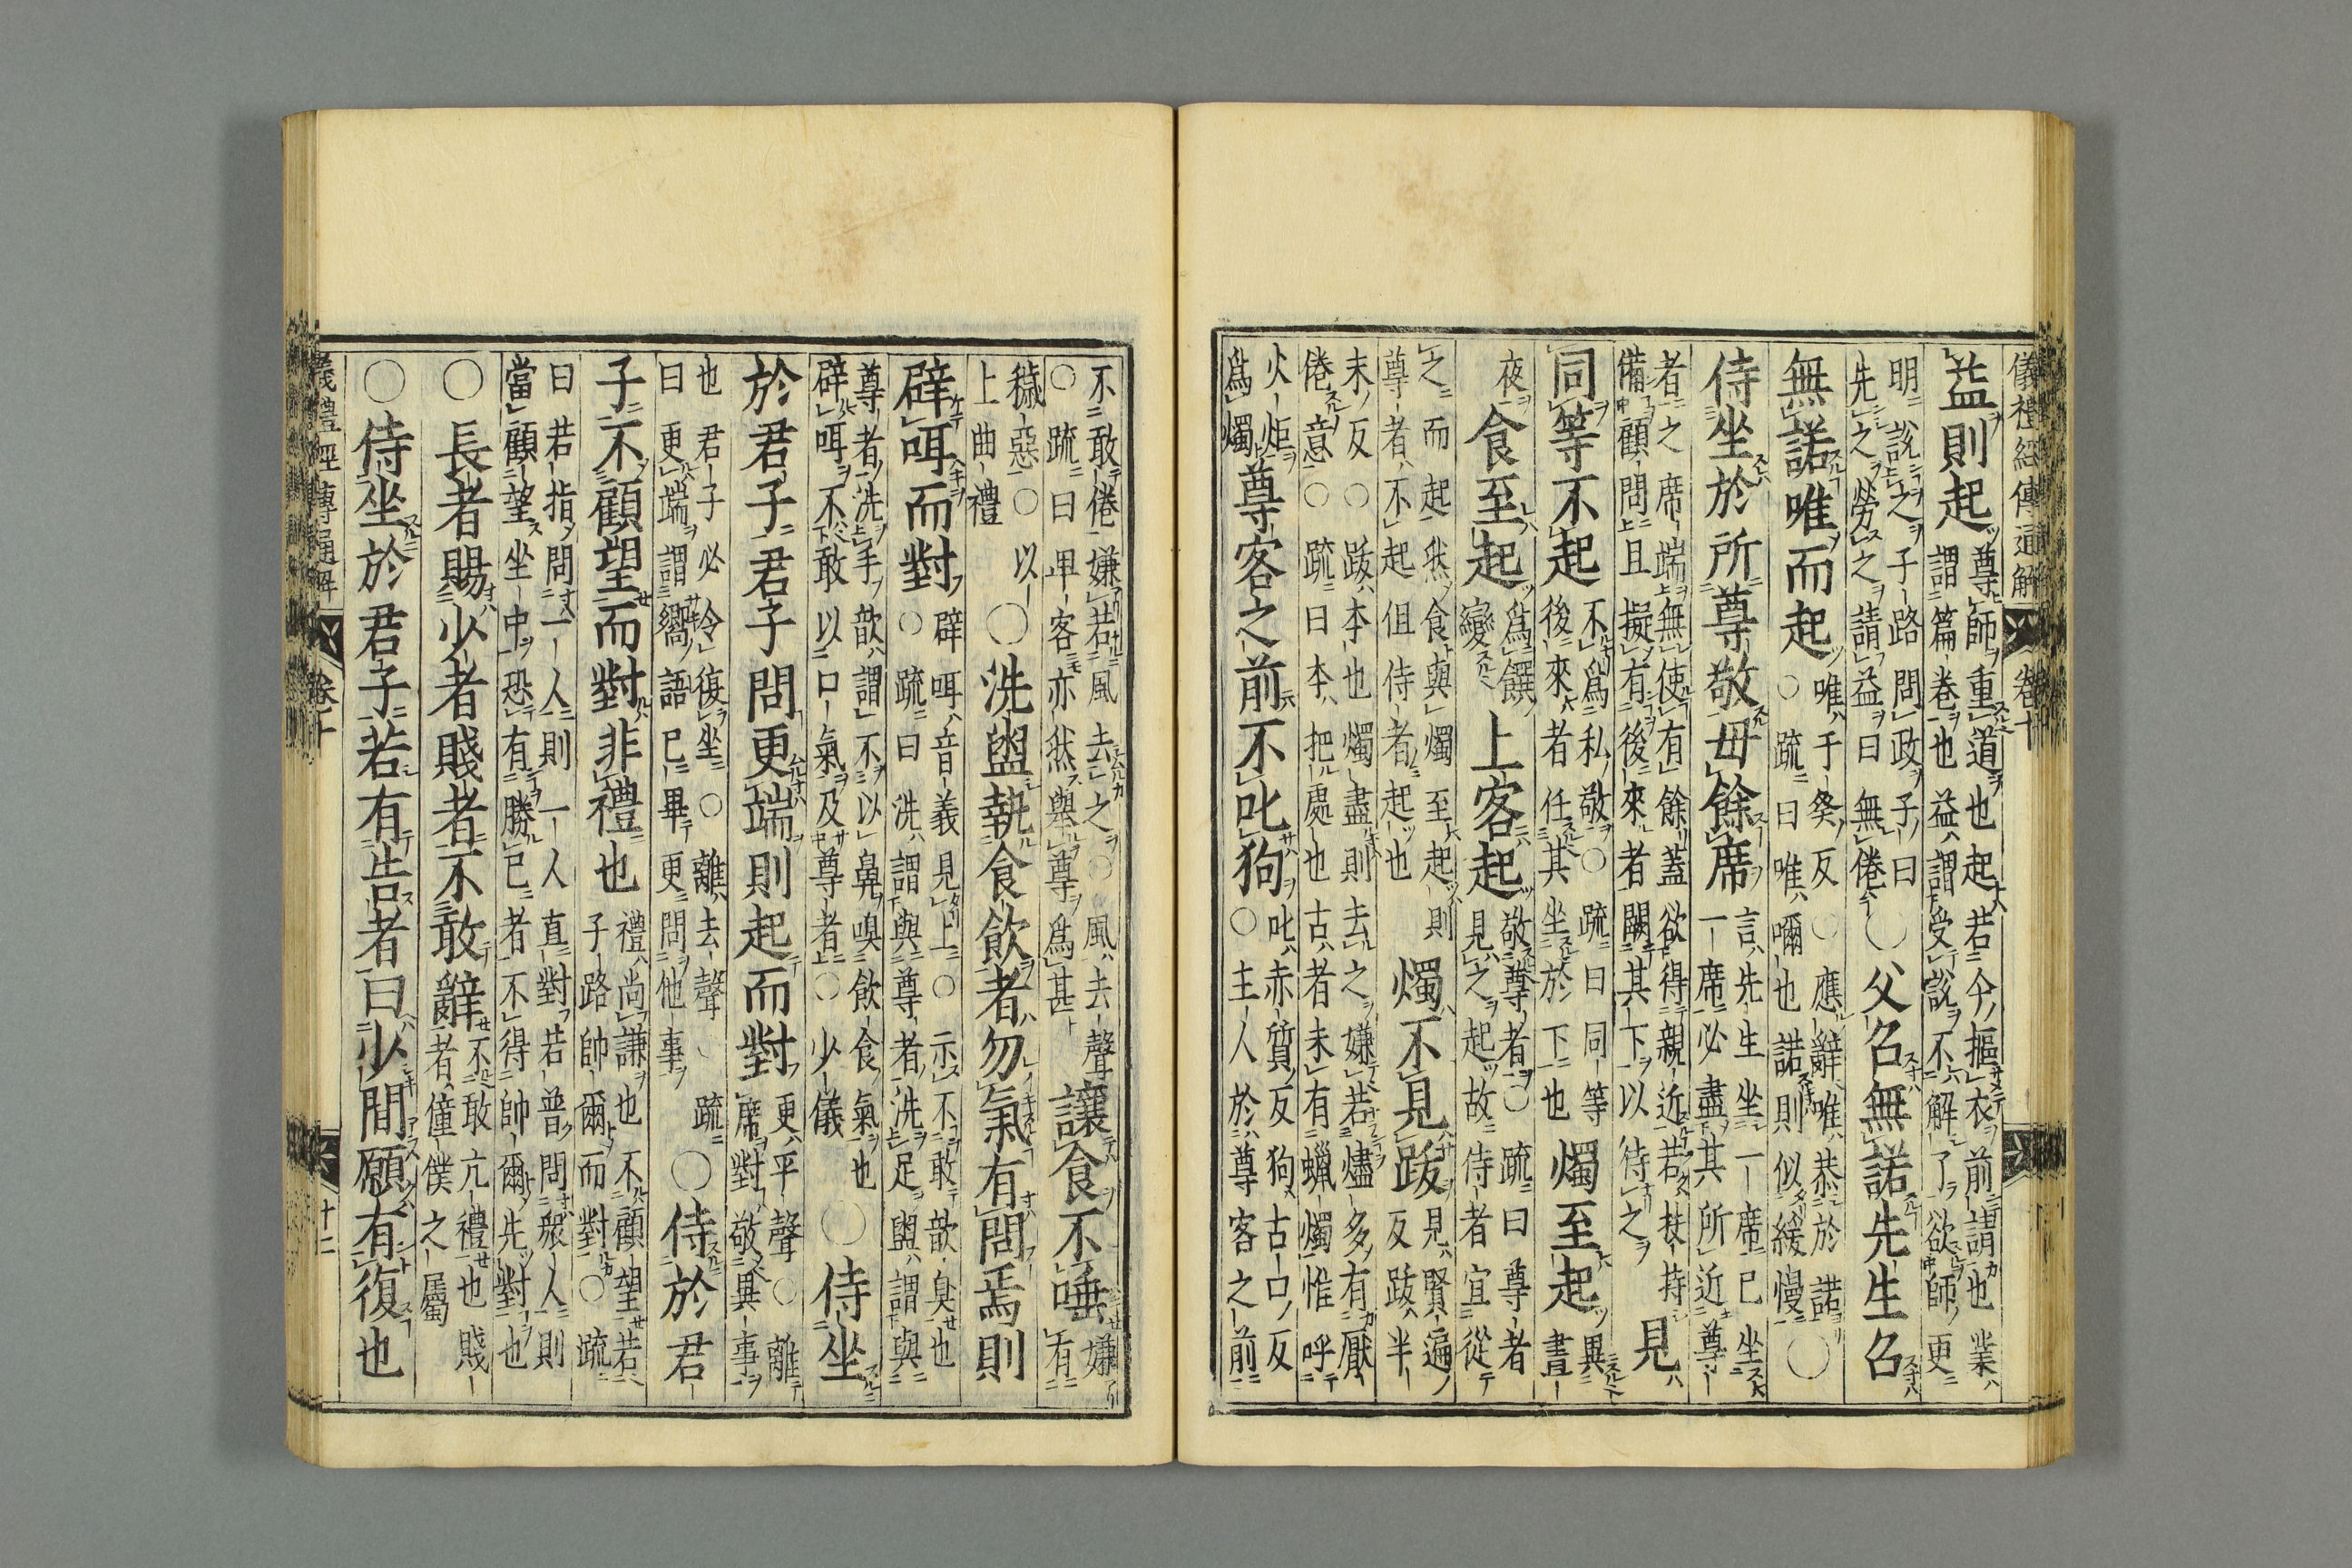 儀禮經傳通解 卷十
益則起尊師重道也起若今摳衣前請也業
謂篇卷也益謂受說不解了欲師更
明說之子路問政子曰
先之勞之請益曰無倦○父召無諾先生召
無諾唯而起唯于癸反○應辭唯恭於諾
○疏曰唯嚪也諾則似緩慢○
侍坐於所尊敬毋餘席言先生坐一席已坐
一席必盡其所近尊
者之席端無使有餘蓋欲得親近若扶持
備顧問且擬有後來者闕其下以待之見
同等不起不爲私敬○疏曰同等
後來者任其坐於下也燭至起異
晝
夜食至起爲饌
變上客起敬尊者○疏曰尊者
見之起故侍者宜從
之而起然食與燭至起則
尊者不起但侍者起也燭不見跋見賢遍
反跋半
末反○跋本也燭盡則去之嫌若燼多有厭
倦意○疏曰本把處也古者未有蠟燭惟呼
火炬
爲燭尊客之前不叱狗叱赤質反狗古口反
○主人於尊客之前
不敢倦嫌若風去之○風去聲
○疏曰卑客亦然舉尊爲甚讓食不唾嫌
有
穢惡○以
上曲禮○洗盥執食飲者勿氣有問焉則
辟咡而對辟咡音義見上○示不敢歆臭也
○疏曰洗謂與尊者洗足盥謂與
尊者洗手歆謂不以鼻嗅飲食氣也
辟咡不敢以口氣及尊者○少儀○侍坐
於君子君子問更端則起而對更平聲○離
席對敬異事
也君子必令復坐○離去聲○疏
曰更端謂嚮語已畢更問他事○侍於君
子不顧望而對非禮也禮尚謙也不顧望若
子路帥爾而對○疏
曰若指問一人則一人直對若普問衆人則
當顧望坐中恐有勝己者不得帥爾先對也
○長者賜少者賤者不敢辭不敢亢禮也賤
者僮僕之屬
○侍坐於君子若有告者曰少間願有復也
儀禮經傳通解 卷十 十二